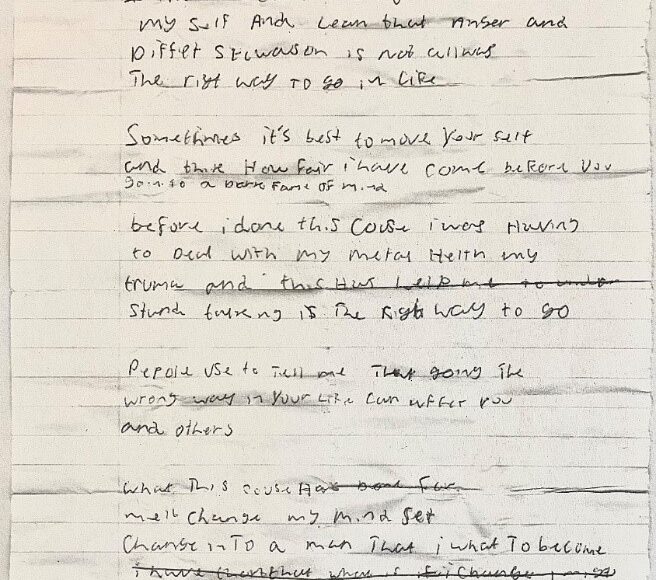 my self And Lean that Anser and
Differ Stiwason is not allwas
The right way TO go in Like
Sometimmes it's best to move your self
and thine How Fair i have come before you
goin to a bark Fame of mind
before i done this Couse i was Having
to Deal with my metal Helth my
truma and this Has help me to under
Stand tarking is The Right way to go
Pepole use to Tell me That going The
wrong way in Your Like Can affer you
and others
what This couse Has done For
me is change my mind set
Change in TO a man That i what To become